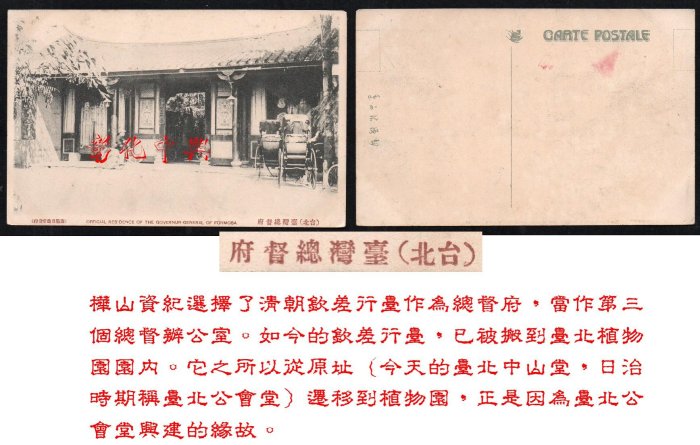 彰化中興
OFFICIAL RESIDENCE OF THE GOVERNUR GENERAL OF FORMOSA
府督總灣臺(北台)
CARTE POSTALE
府督總灣臺(北台)
樺山資紀選擇了清朝欽差行臺作為總督府，當作第三
個總督辦公室。如今的欽差行臺，已被搬到臺北植物
園園內。它之所以從原址（今天的臺北中山堂，日治
時期稱臺北公會堂）遷移到植物園，正是因為臺北公
會堂興建的緣故。